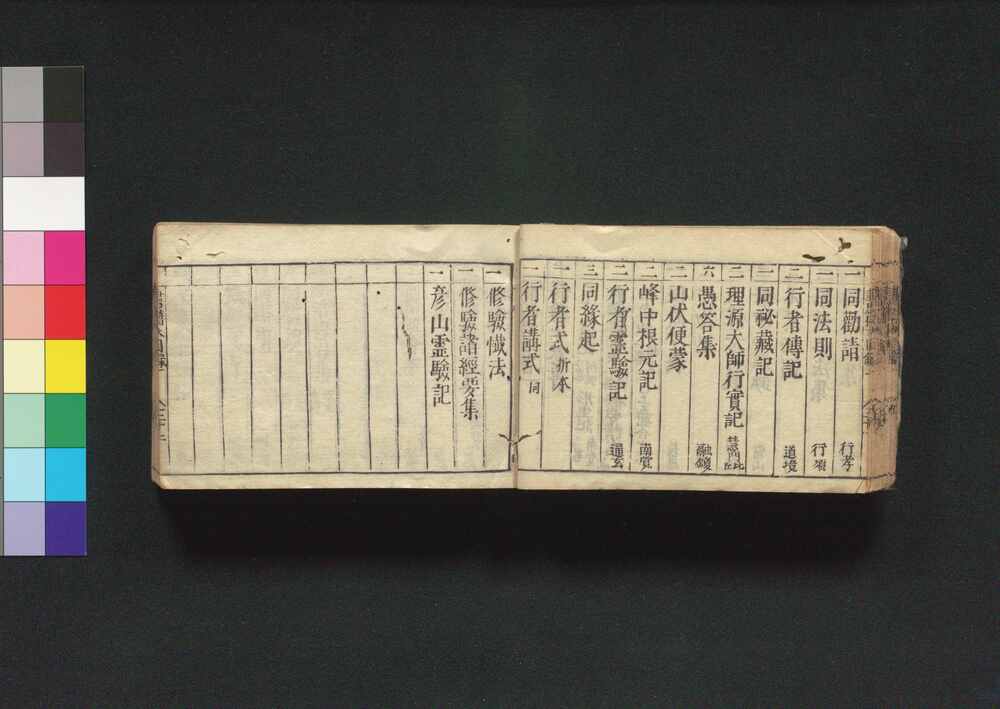 一 同勸請 行孝
一 同法則 行
二 行者傳記 道境
一 同祕藏記
二 理源大師行實記
六 愚答集
二 山伏便蒙
二 峰中根元記
二 行者靈驗記
三 同緣起
一 行者式 折本
一 行者講式 同
一 修驗懺法
一 修驗諸經要集
一 彥山靈驗記